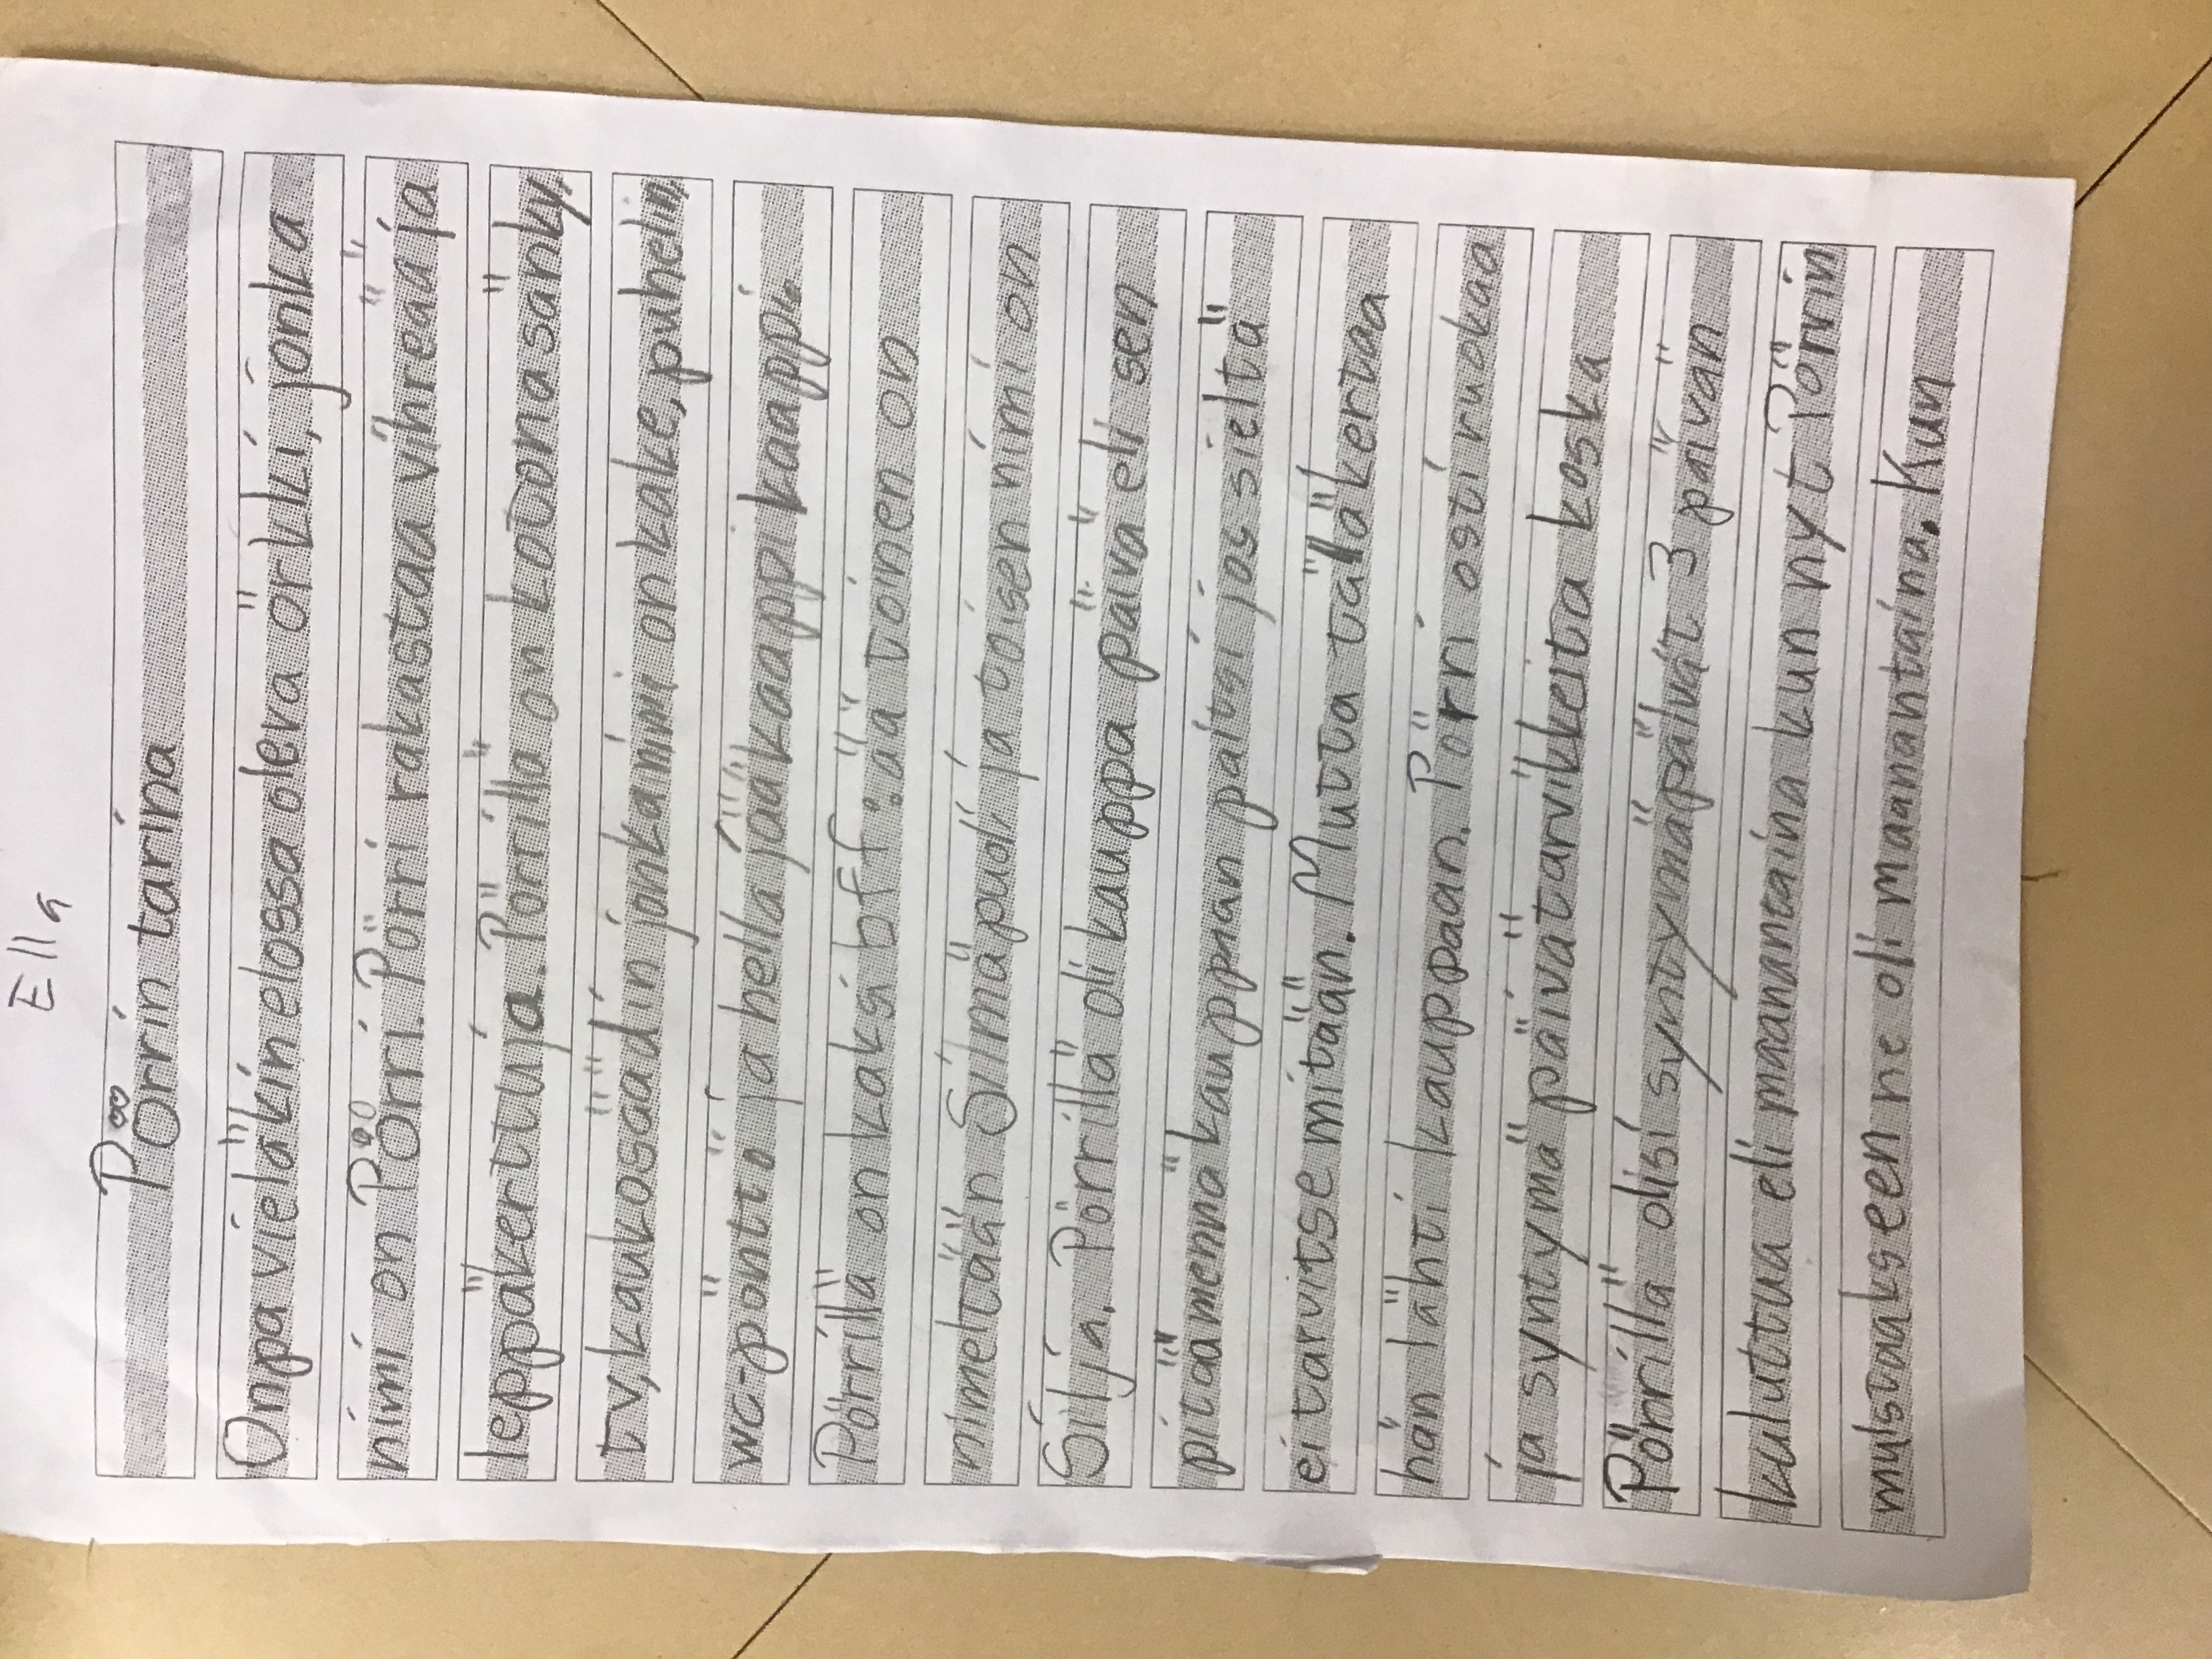 Ella
Pörrin tarina
Onpa vieläkin elossa oleva örkki, jonka
nimi on Pörri. Pörri rakastaa vihreää ja
leppäkerttuja. Pörrillä on kotona sänky,
tv, kaukosäädin jonka nimi on kake, puhelin,
wc-pöntto ja hella jääkaappi kaappi.
Pörrillä on kaksi bff:ää toinen on
nimeltään Silmäpudi ja toisen nimi on
Silja. Pörrillä oli kauppa päivä eli sen
pitäämennä kauppnan paitsi jos sieltä
ei tarvitse mitään. Mutta tällä kertaa
hän lähti kauppaan. Pörri osti ruokaa
ja syntymä päivätarvikkeita koska
Pörrillä olisi syntymäpäivät 3 päivän
kuluttua eli maanantaina kun nyt Pörrin
muistaakseen ne oli maanantaina. Kun